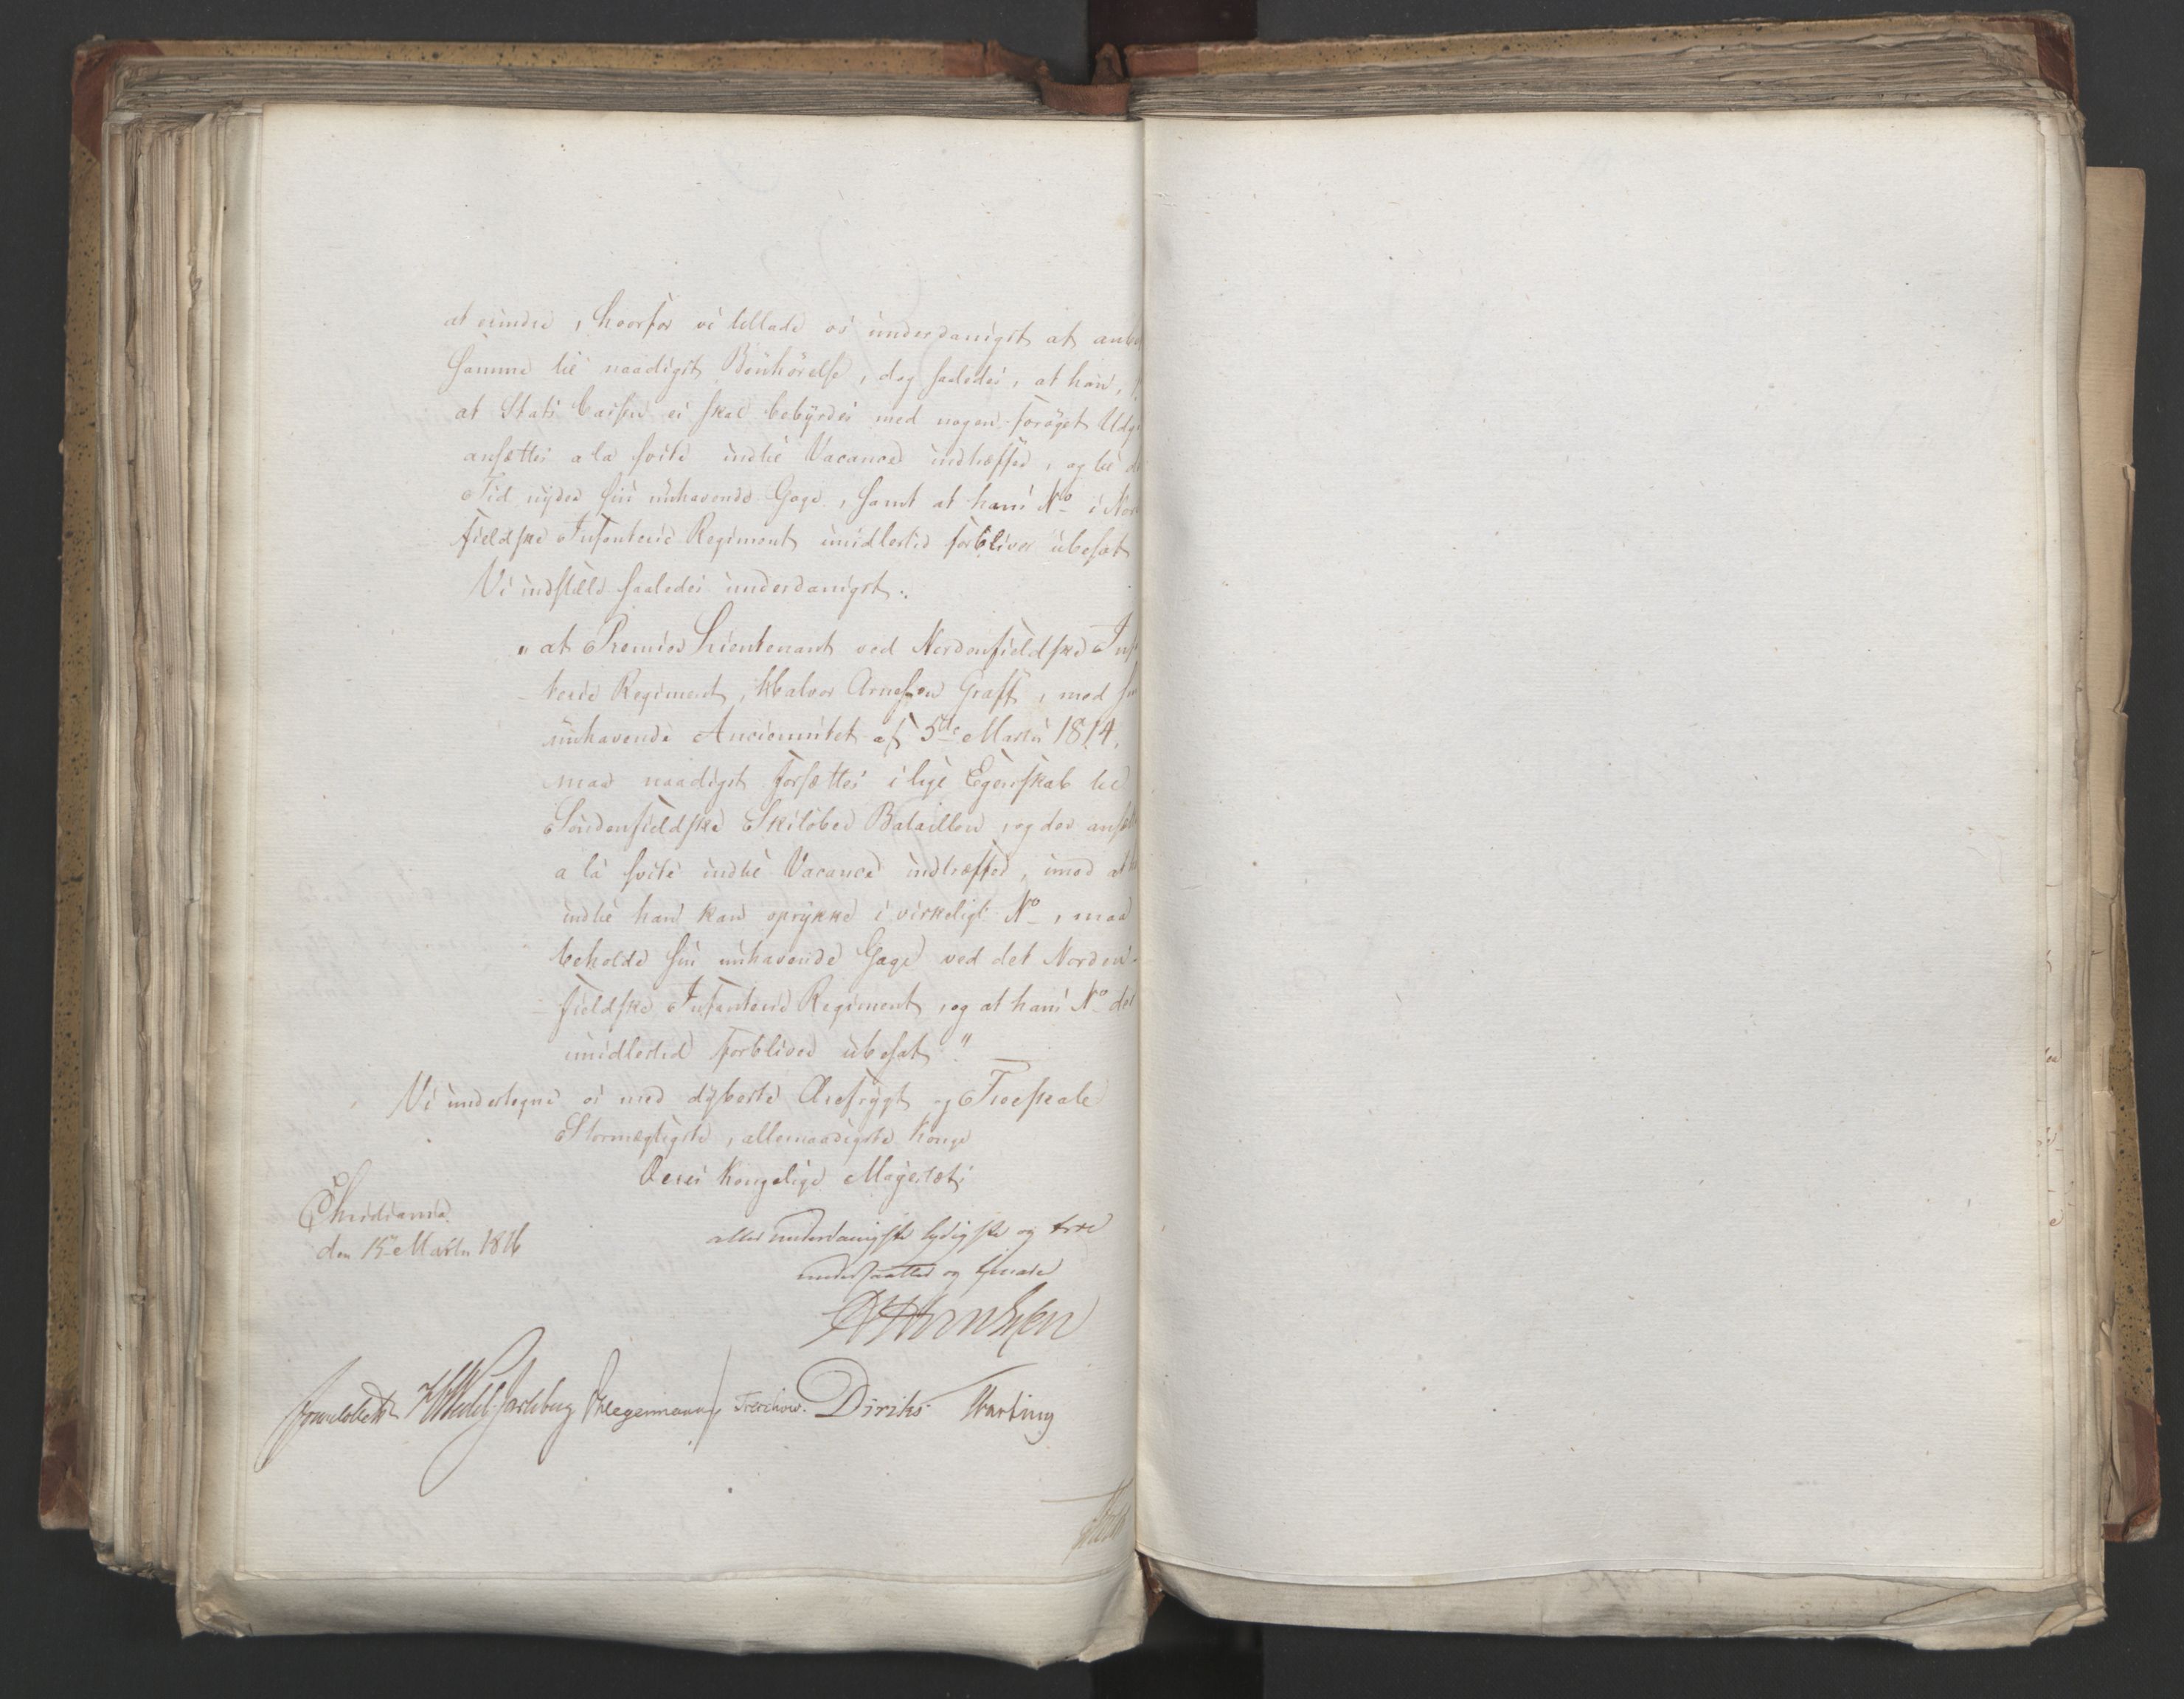 at erindre, hvorfor vi tillade os underdanigst at anbe
samme til naadigst Bønhørelse, dog saaledes, at han,
at Stats Cassen ei skal bebyrdes med nogen forøget Udg
ansættes a la svite indtil Vacance indtræffer, og til d
Tid nyder sin nuhavende Gage, samt at hans No i Nor
fieldske Infanterie Regiment imidlertid forbliver ubesat
Vi indstille saaledes underdanigst:
"at Premier Lieutenant ved Nordenfieldske Inf
terie Regiment, Halvor Arnesen Graff, med sin
nuhavende Anciennitet af 5te Martii 1814,
maa naadigst forsættes i lige Egenskab til
Søndenfieldske Skiløber Bataillon, og der ansætt
a la svite indtil Vacance indtræffer, imod at
indtil han kan oprykke i virkeligt No, maa
beholde sin nuhavende Gage ved det Norden-
fieldske Infanterie Regiment, og at hans No der
imidlertid forbliver ubesat."
Vi undertegne os med dybeste Ærefrygt og Troeskab
Stormægtigste, allernaadigste Konge
Deres Kongelige Majestæts
Christiania
den 15 Martii 1816
allerunderdanigste lydigste og troe
undersaatter og tjenere
Sommerhielm HWedel Jarlsberg Hegermann Treschow. Diriks Harbing